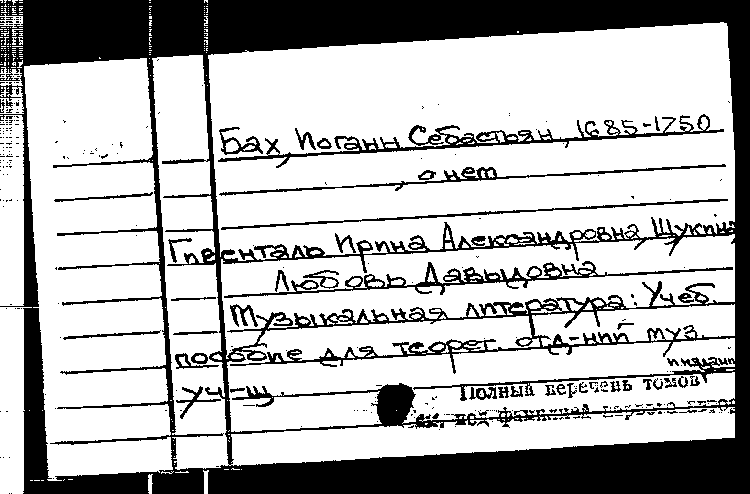 Бах, Иоганн Себастьян, 1685-1750
, о нем
Гивенталь Ирина Александровна, Щукина
Любовь Давыдовна.
Музыкальная литература: Учеб.
пособие для теорет. отд-ний муз.
уч-щ.
Полный перечень томов
см. под фамилией первого автор